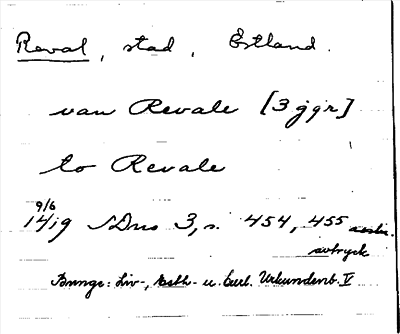 Reval, stad, Estland.
van Revale [3 ggr]
to Revale
9/6
1419 SDns 3, s. 454, 455
avtryck
Bunge: Liv-, Esth- u. Curl. Urkundenb. V